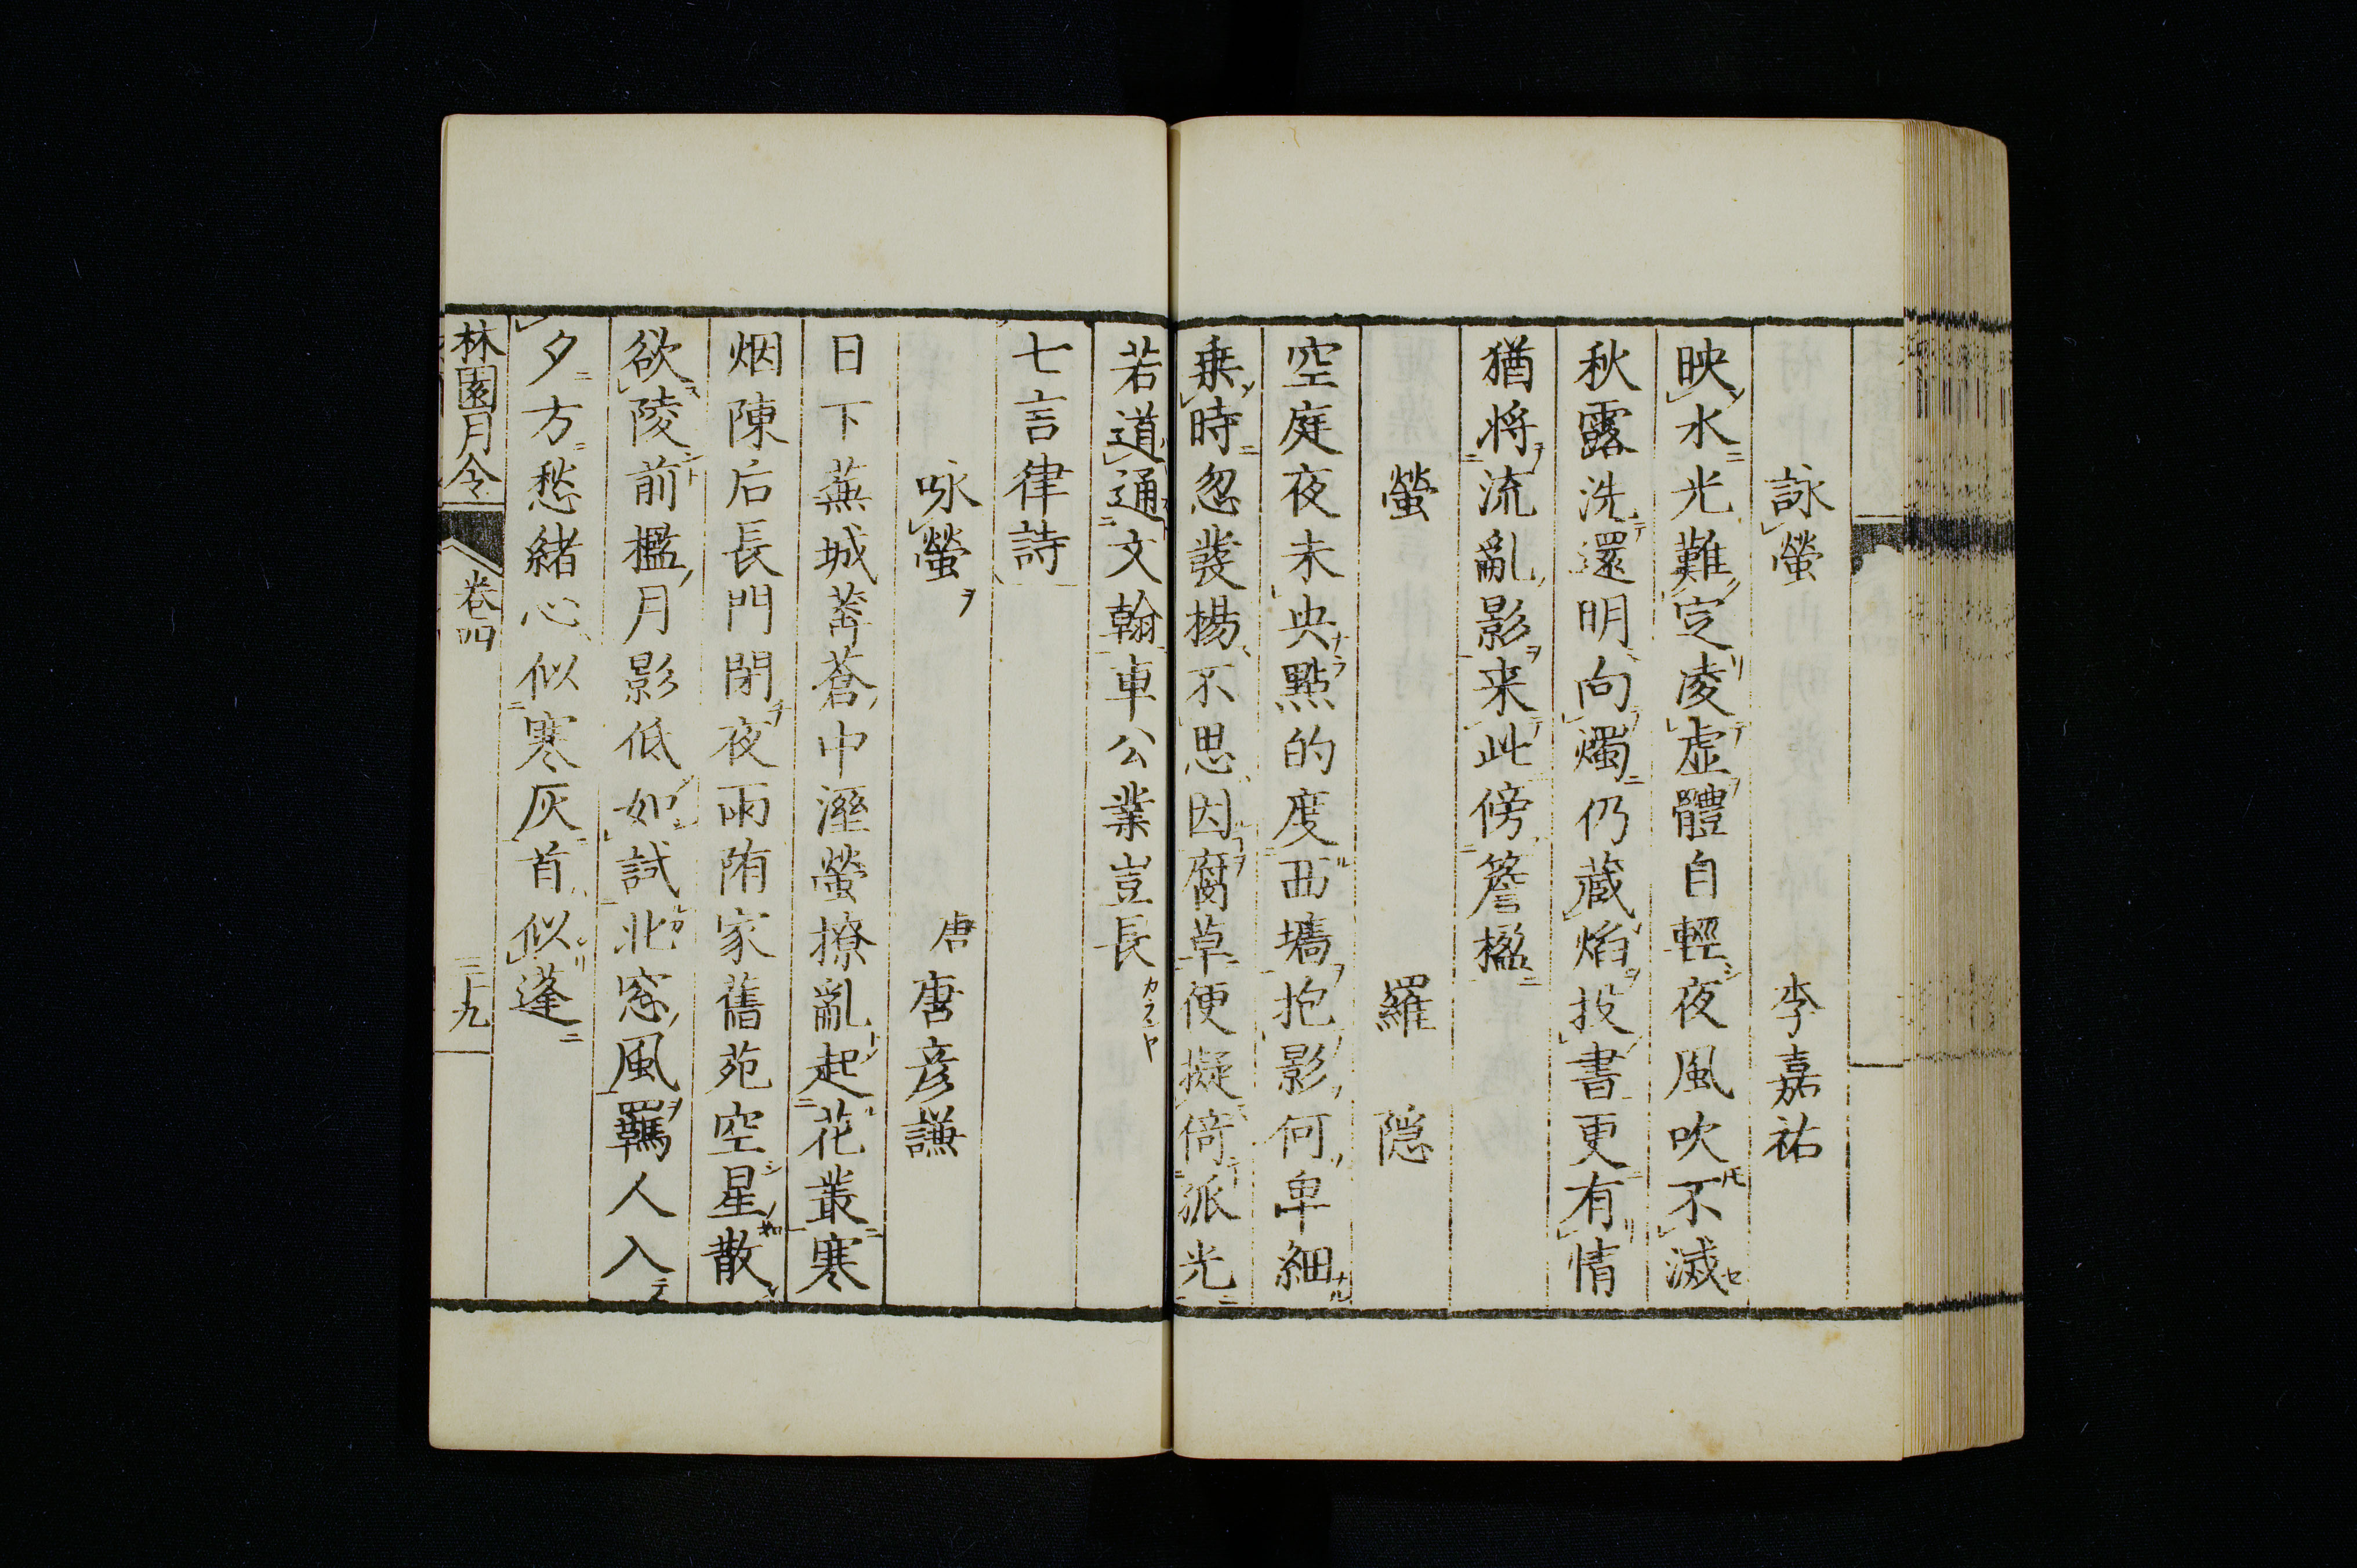 詠螢 李嘉祐
映水光難定凌虚體自輕夜風吹不滅
秋露洗還明向燭仍藏焰投書更有情
猶將流亂影来此傍簷楹
螢 羅隠
空庭夜未央點的度西墻抱影何卑細
乗時忽發揚不思因腐草便擬倚孤光
若道通文翰車公業豈長
七言律詩
咏螢 唐唐彦謙
日下蕪城莾蒼中溼螢撩亂起花叢寒
烟陳后長門閉夜雨陏家舊苑空星散
欲陵前檻月影低如試北窓風羈人入
夕方愁緒心似寒灰首似蓬
林園月令 卷四 二十九